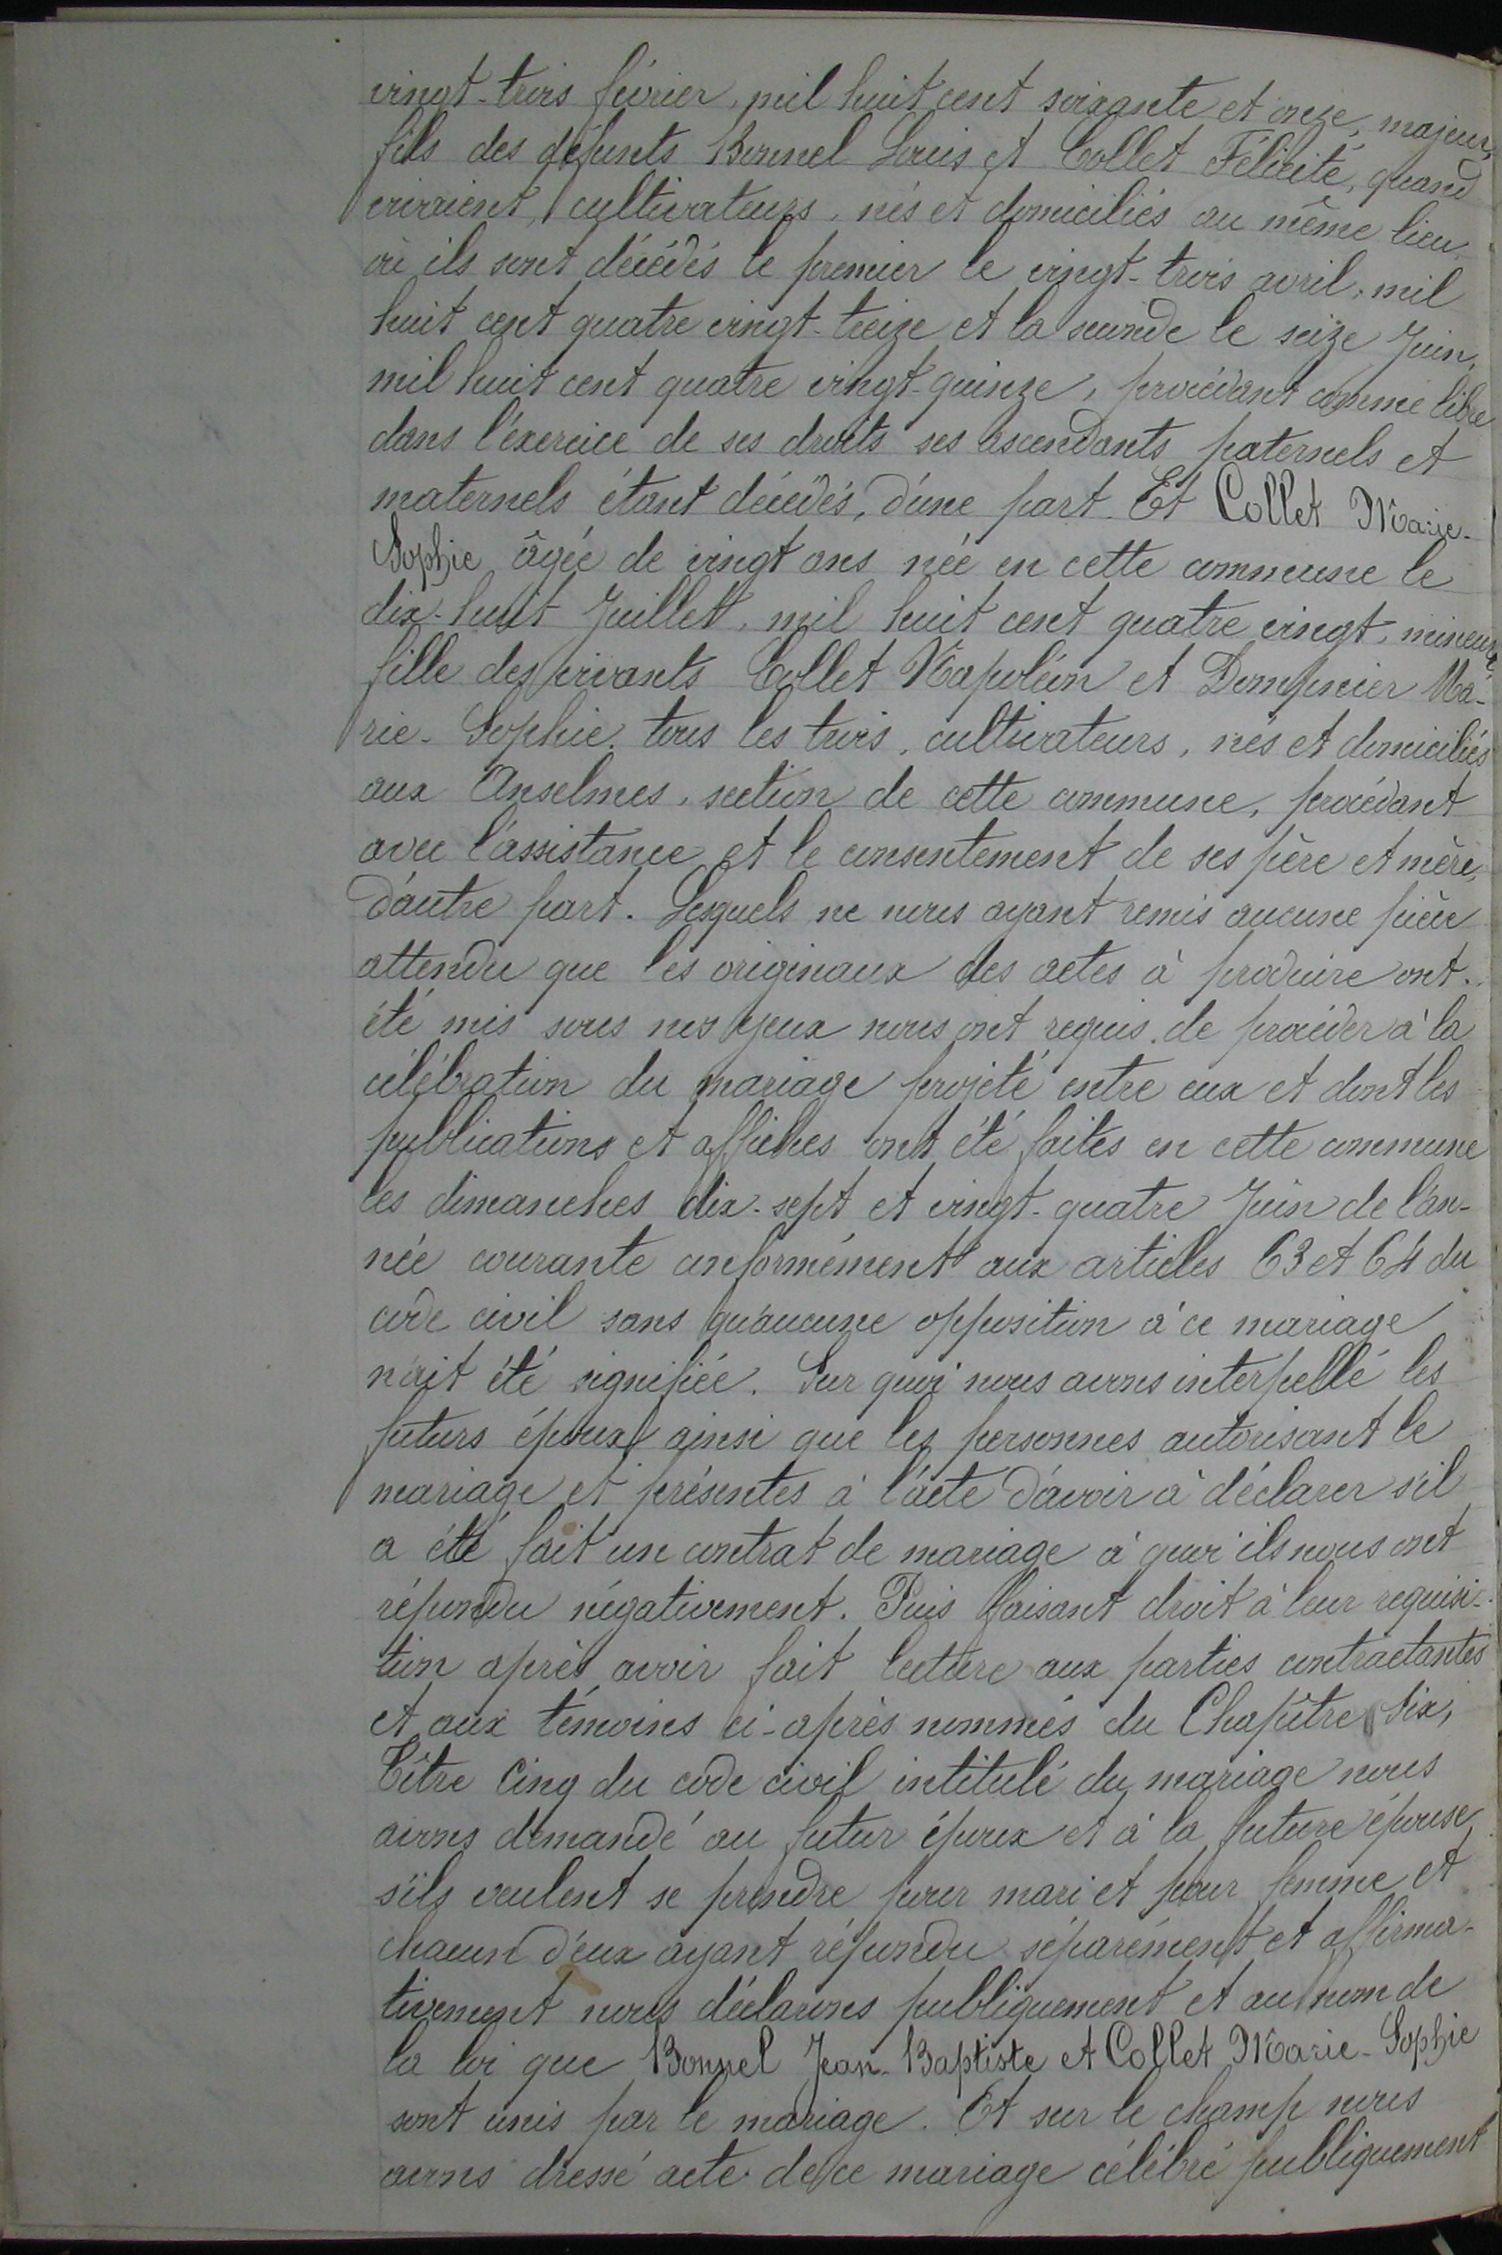 vingt-trois février, mil huit cent soixante et onze, majeur,
fils des défunts Bonnel Louis et Collet Félicité, quand
vivaient, cultivateurs, nés et domiciliés au même lieu
où ils sont décédés le premier le vingt-trois avril, mil
huit cent quatre vingt-treize et la seconde le seize Juin,
mil huit cent quatre vingt-quinze, procédant comme libre
dans l'éxercice de ses droits ses ascendants paternels et
maternels étant décédés, d'une part. Et Collet Marie-
Sophie âgée de vingt ans née en cette commune le
dix-huit Juillet, mil huit cent quatre vingt, mineure,
fille des vivants Collet Napoléon et Dompnier Ma-
rie-Sophie, tous les trois, cultivateurs, nés et domiciliés
aux Anselmes, section de cette commune, procédant
avec l'assistance et le consentement de ses père et mère,
d'autre part. Lesquels ne nous ayant remis aucune pièce
attendu que les originaux des actes à produire ont
été mis sous nos yeux nous ont requis de procéder à la
célébration du mariage projeté entre eux et dont les
publications et affiches ont été faites en cette commune
les dimanches dix-sept et vingt-quatre Juin de l'an-
née courante conformément aux articles 63 et 64 du
code civil sans qu'aucune opposition à ce mariage
n'ait été signifiée. Sur quoi nous avons interpellé les
futurs époux ainsi que les personnes autorisant le
mariage et présentes à l'acte d'avoir à déclarer s'il
a été fait un contrat de mariage à quoi ils nous ont
répondu négativement. Puis faisant droit à leur requisi-
tion après avoir fait lecture aux parties contractantes
et aux témoins ci-après nommés du Chapître Six,
Tître Cinq du code civil intitulé du mariage nous
avons demandé au futur époux et à la future épouse
s'ils veulent se prendre pour mari et pour femme et
chacun d'eux ayant répondu séparément et affirma-
tivement nous déclarons publiquement et au nom de
la loi que Bonnel Jean-Baptiste et Collet Marie-Sophie
sont unis par le mariage. Et sur le champ nous
avons dressé acte de ce mariage célébré publiquement